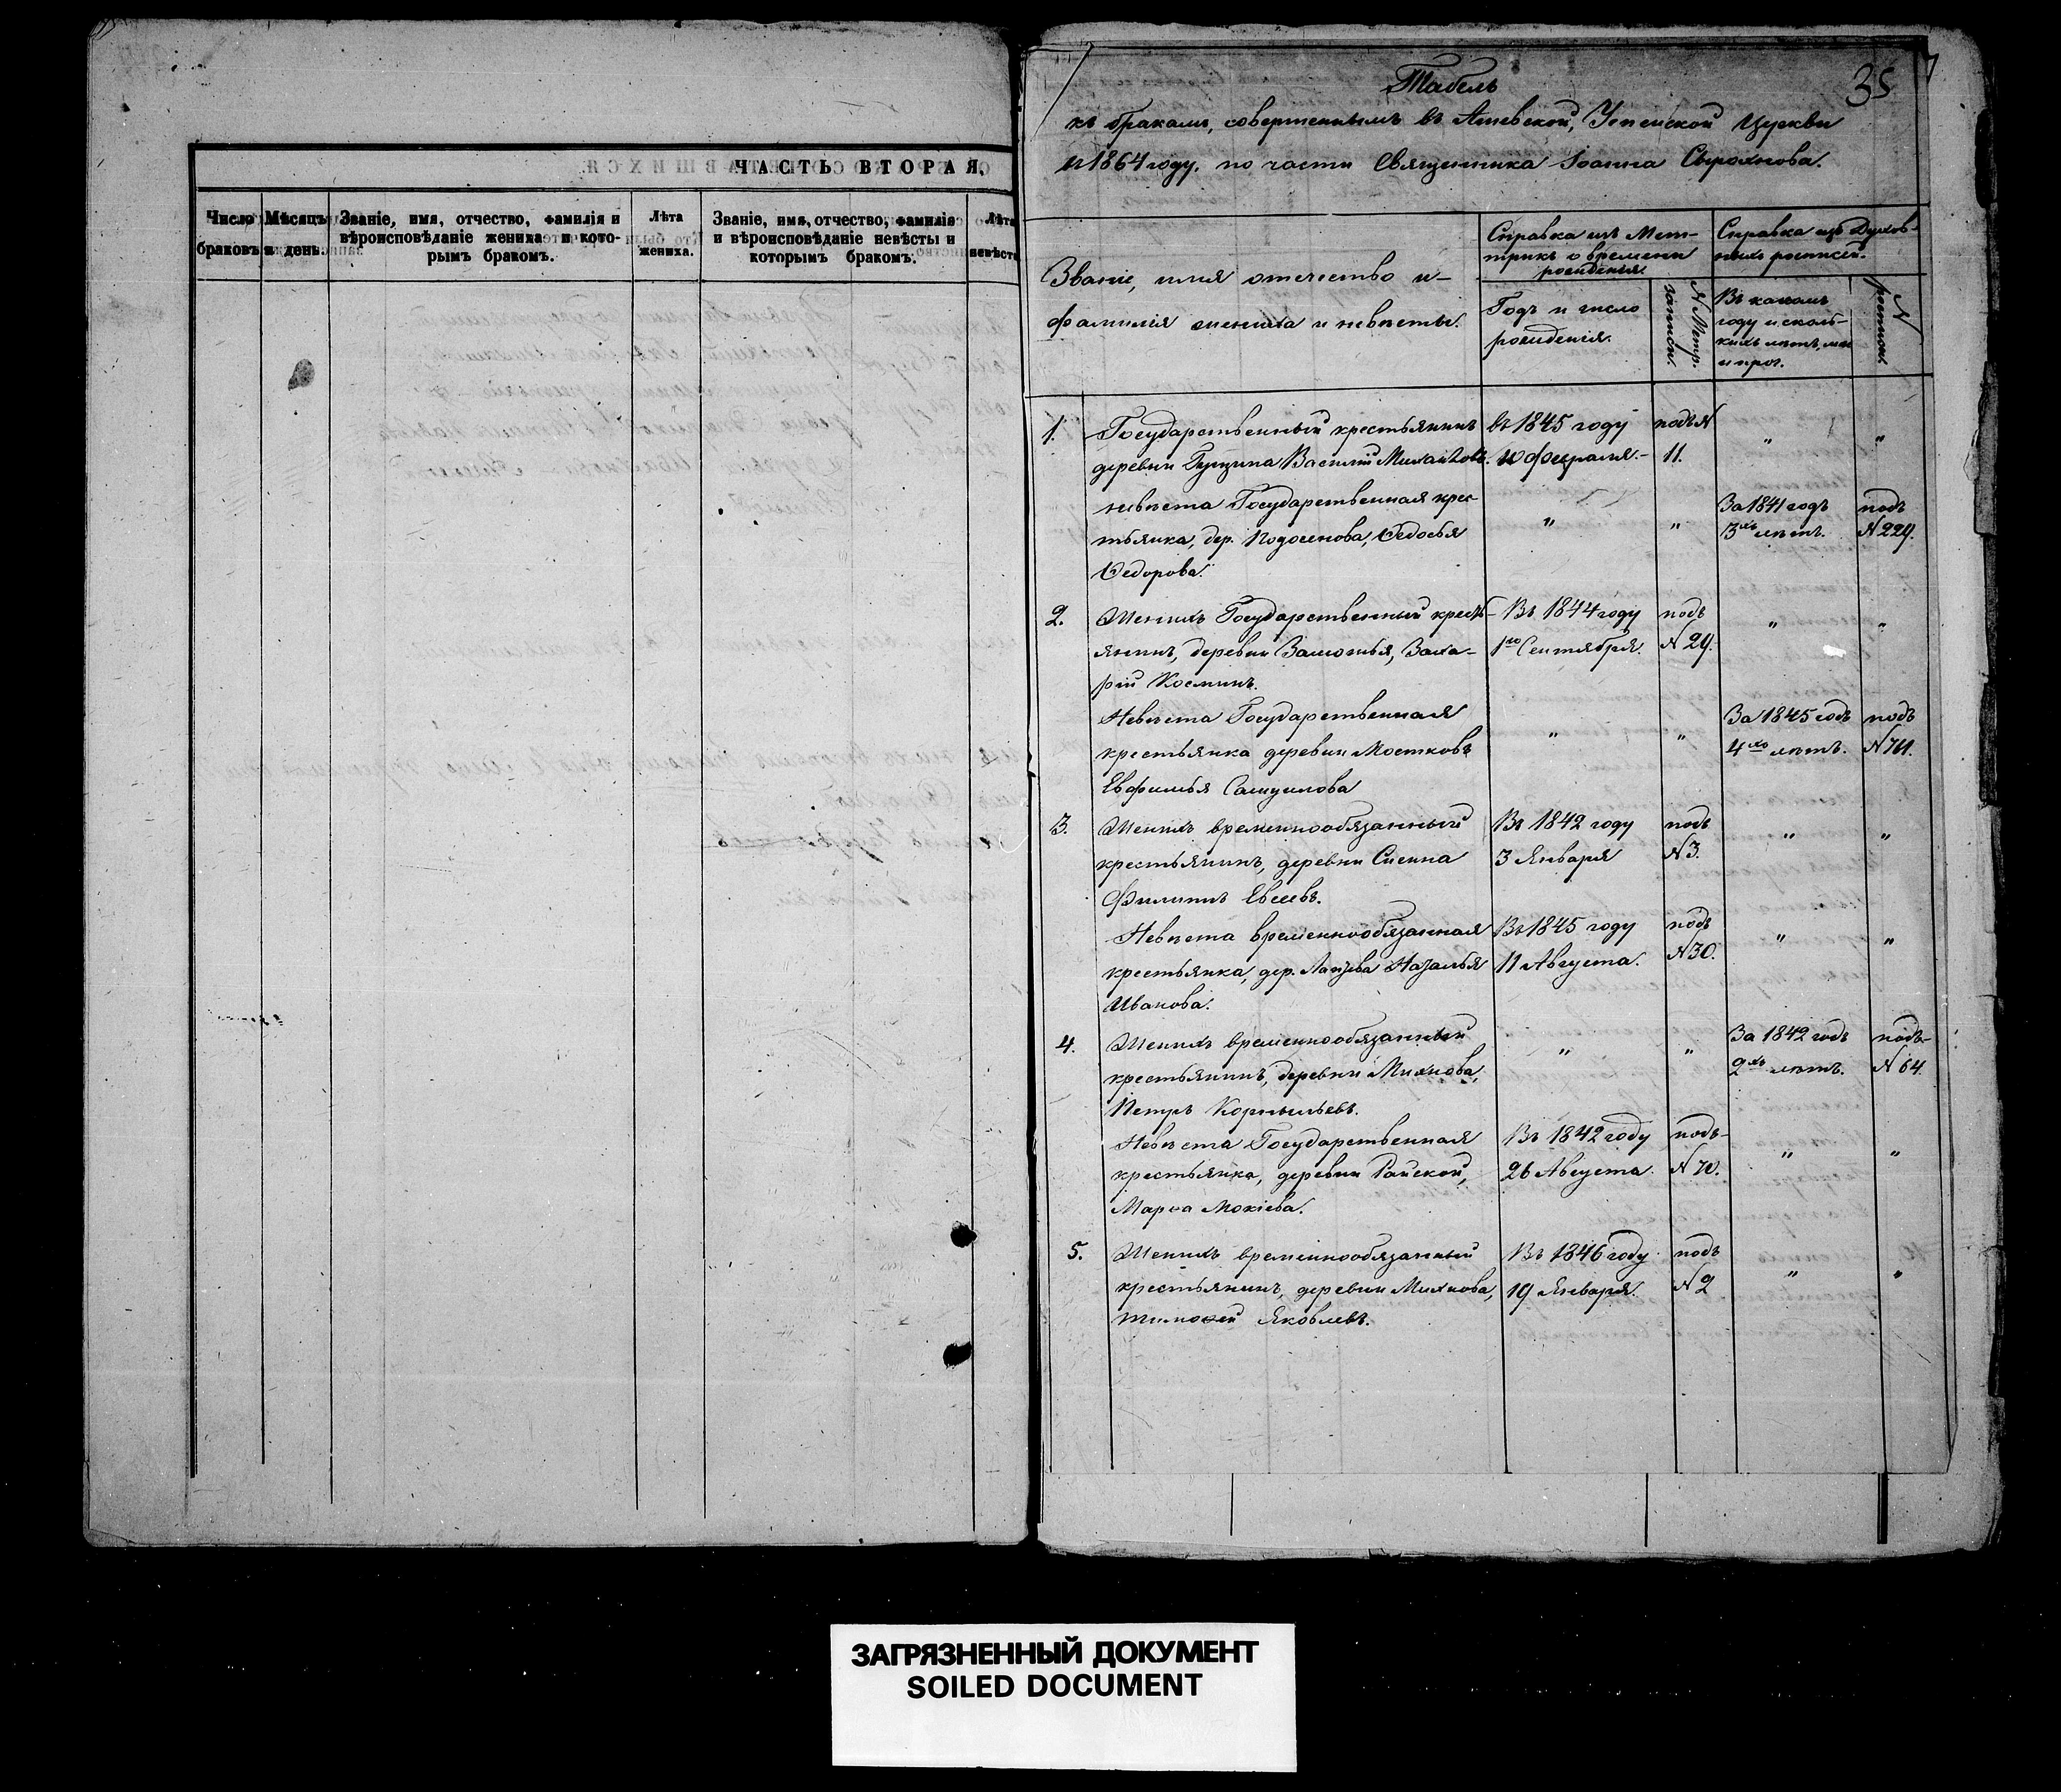 ЧАСТЬ ВТОРАЯ,
Число браковъ
Мѣсяцъ и день.
Званіе, имя, отчество, фамилія и
вѣроисповѣданіе жениха и кото-
рымъ бракомъ.
Лѣта
жениха.
Званіе, имя, отчество, фамилія
и вѣроисповѣданіе невѣсты и
которымъ бракомъ.
Лѣта
невѣсты
35
Табель
къ бракамъ, совершеннымъ въ Ашевской, Успенской Церкви
въ 1864 году. по части Священника Іоанна
Званіе, имя отчество и
фамилія жениха и невѣсты.
Справка изъ Мет-
рикъ о времени
рожденія.
Годъ и число
рожденія.
N Метр.
записи.
Справка изъ Духов-
ныхъ росписей.
Въ какомъ
году и сколь-
кихъ лѣтъ, мы
и проч.
N
росписи.
1. Государственный крестьянинъ въ 1845 году подъ N „ „
деревни Василій Михайловъ. 10 Февраля. 11.
невѣста Государственная крес- За 1841 годъ подъ
тьянка, дер. Федосья „ „ 3хъ лѣтъ. N 229.
Федорова.
2. Женихъ Государственный кресть- Въ 1844 году подъ „ „
янинъ, деревни Заха- 1го Сентября. N 29.
рій Косминъ.
Невѣста Государственная За 1845 годъ подъ
крестьянка деревни Мостковъ „ „ 4хъ лѣтъ.
Евфимья
3. Женихъ временнообязанный Въ 1842 году подъ „ „
крестьянинъ, деревни 3 Января N 3.
Филиппъ Евсеевъ.
Невѣста временнообязанная Въ 1845 году подъ „ „
крестьянка, дер. Наталья 11 Августа. N 30.
Иванова.
4. Женихъ временнообязанный „ „ За 1842 годъ подъ
крестьянинъ, деревни Михнова, 2хъ лѣтъ. N 64.
Петръ Корнильевъ.
Невѣста Государственная Въ 1842 году подъ „ „
крестьянка, деревни Райской, 26 Августа. N 70.
Марѳа Мокіева.
5. Женихъ временнообязанный Въ 1846 году подъ „ „
крестьянинъ, деревни Михнова, 19 Января. N 2
Тимоѳей Яковлевъ.
ЗАГРЯЗНЕННЫЙ ДОКУМЕНТ
SOILED DOCUMENT